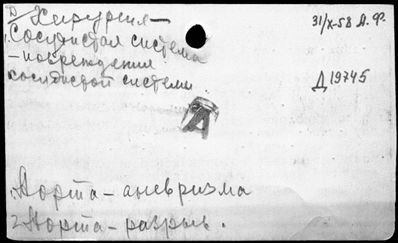 D Хирургия— 31/X-58 А.Ф.
1. Сосудистая система
— повреждения
сосудистой системы.
Д 19745
А
1. Аорта — аневризма
2. Аорта — разрыв.